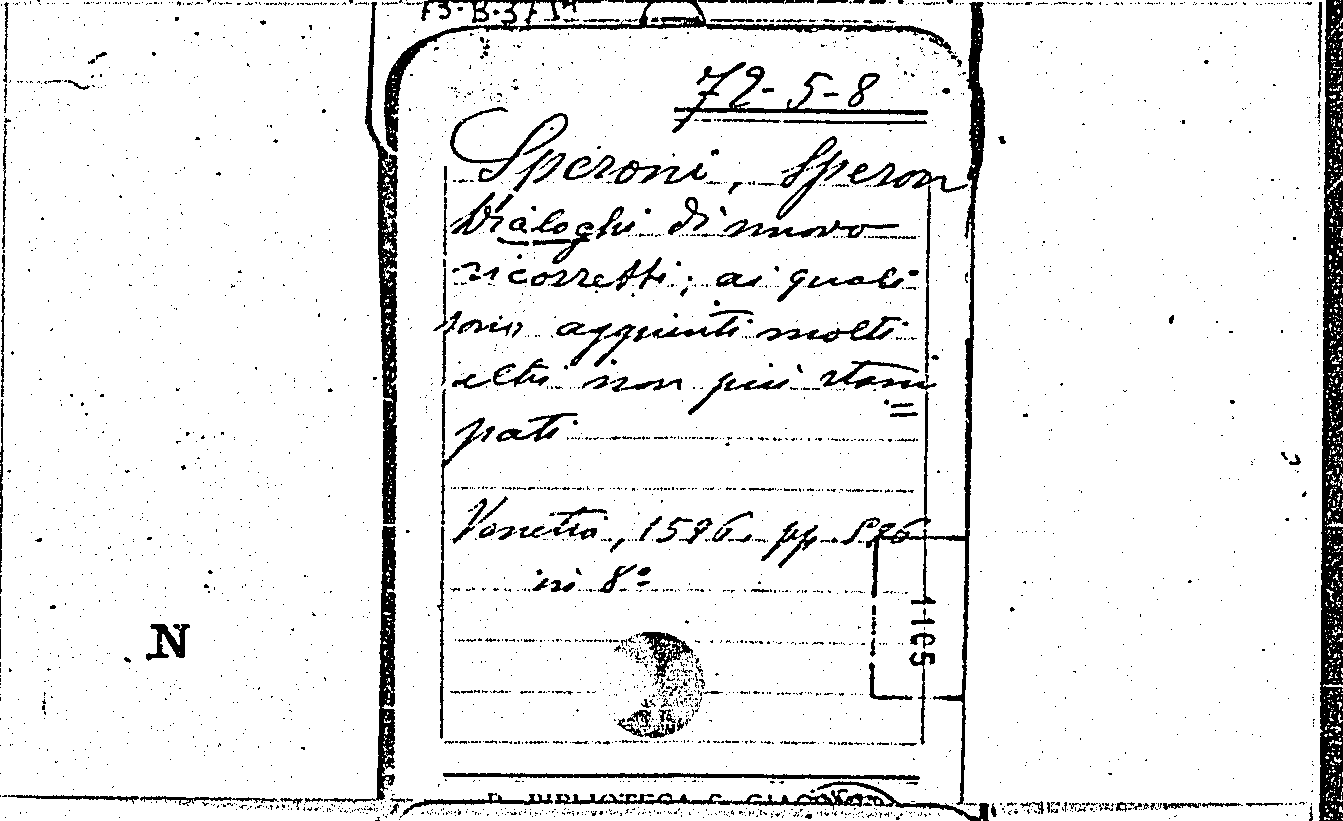 72-5-8
Speroni, Speron
Dialoghi di nuovo
ricorretti; ai quali
sono aggiunti molti
altri non più stam
pati
Venetia, 1596. pp.
in 8º
1165
N
BIBLIOTECA S. GIACOMO